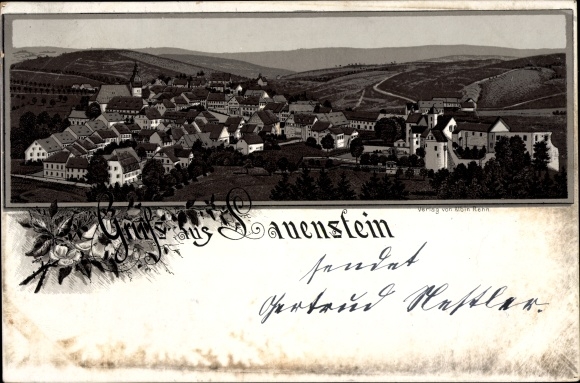 Verlag von Albin Renn
Gruss aus Lauenstein
sendet
Gertrud Nestler.